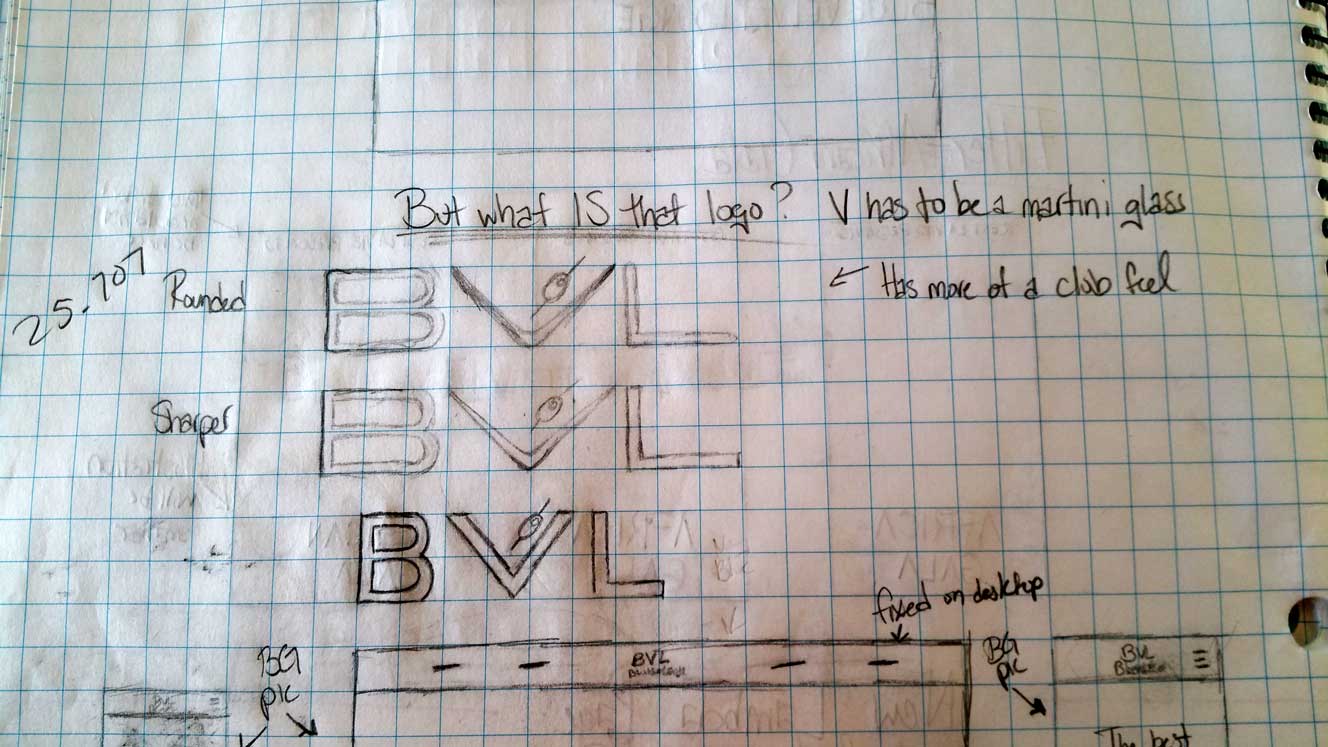 But what IS that logo? V has to be a martini glass
25-707
Rounded
BVL
← Has more of a club feel
Sharper
BVL
BVL
fixed on desktop
BG
pic
BVL
BG
pic
BVL
The best